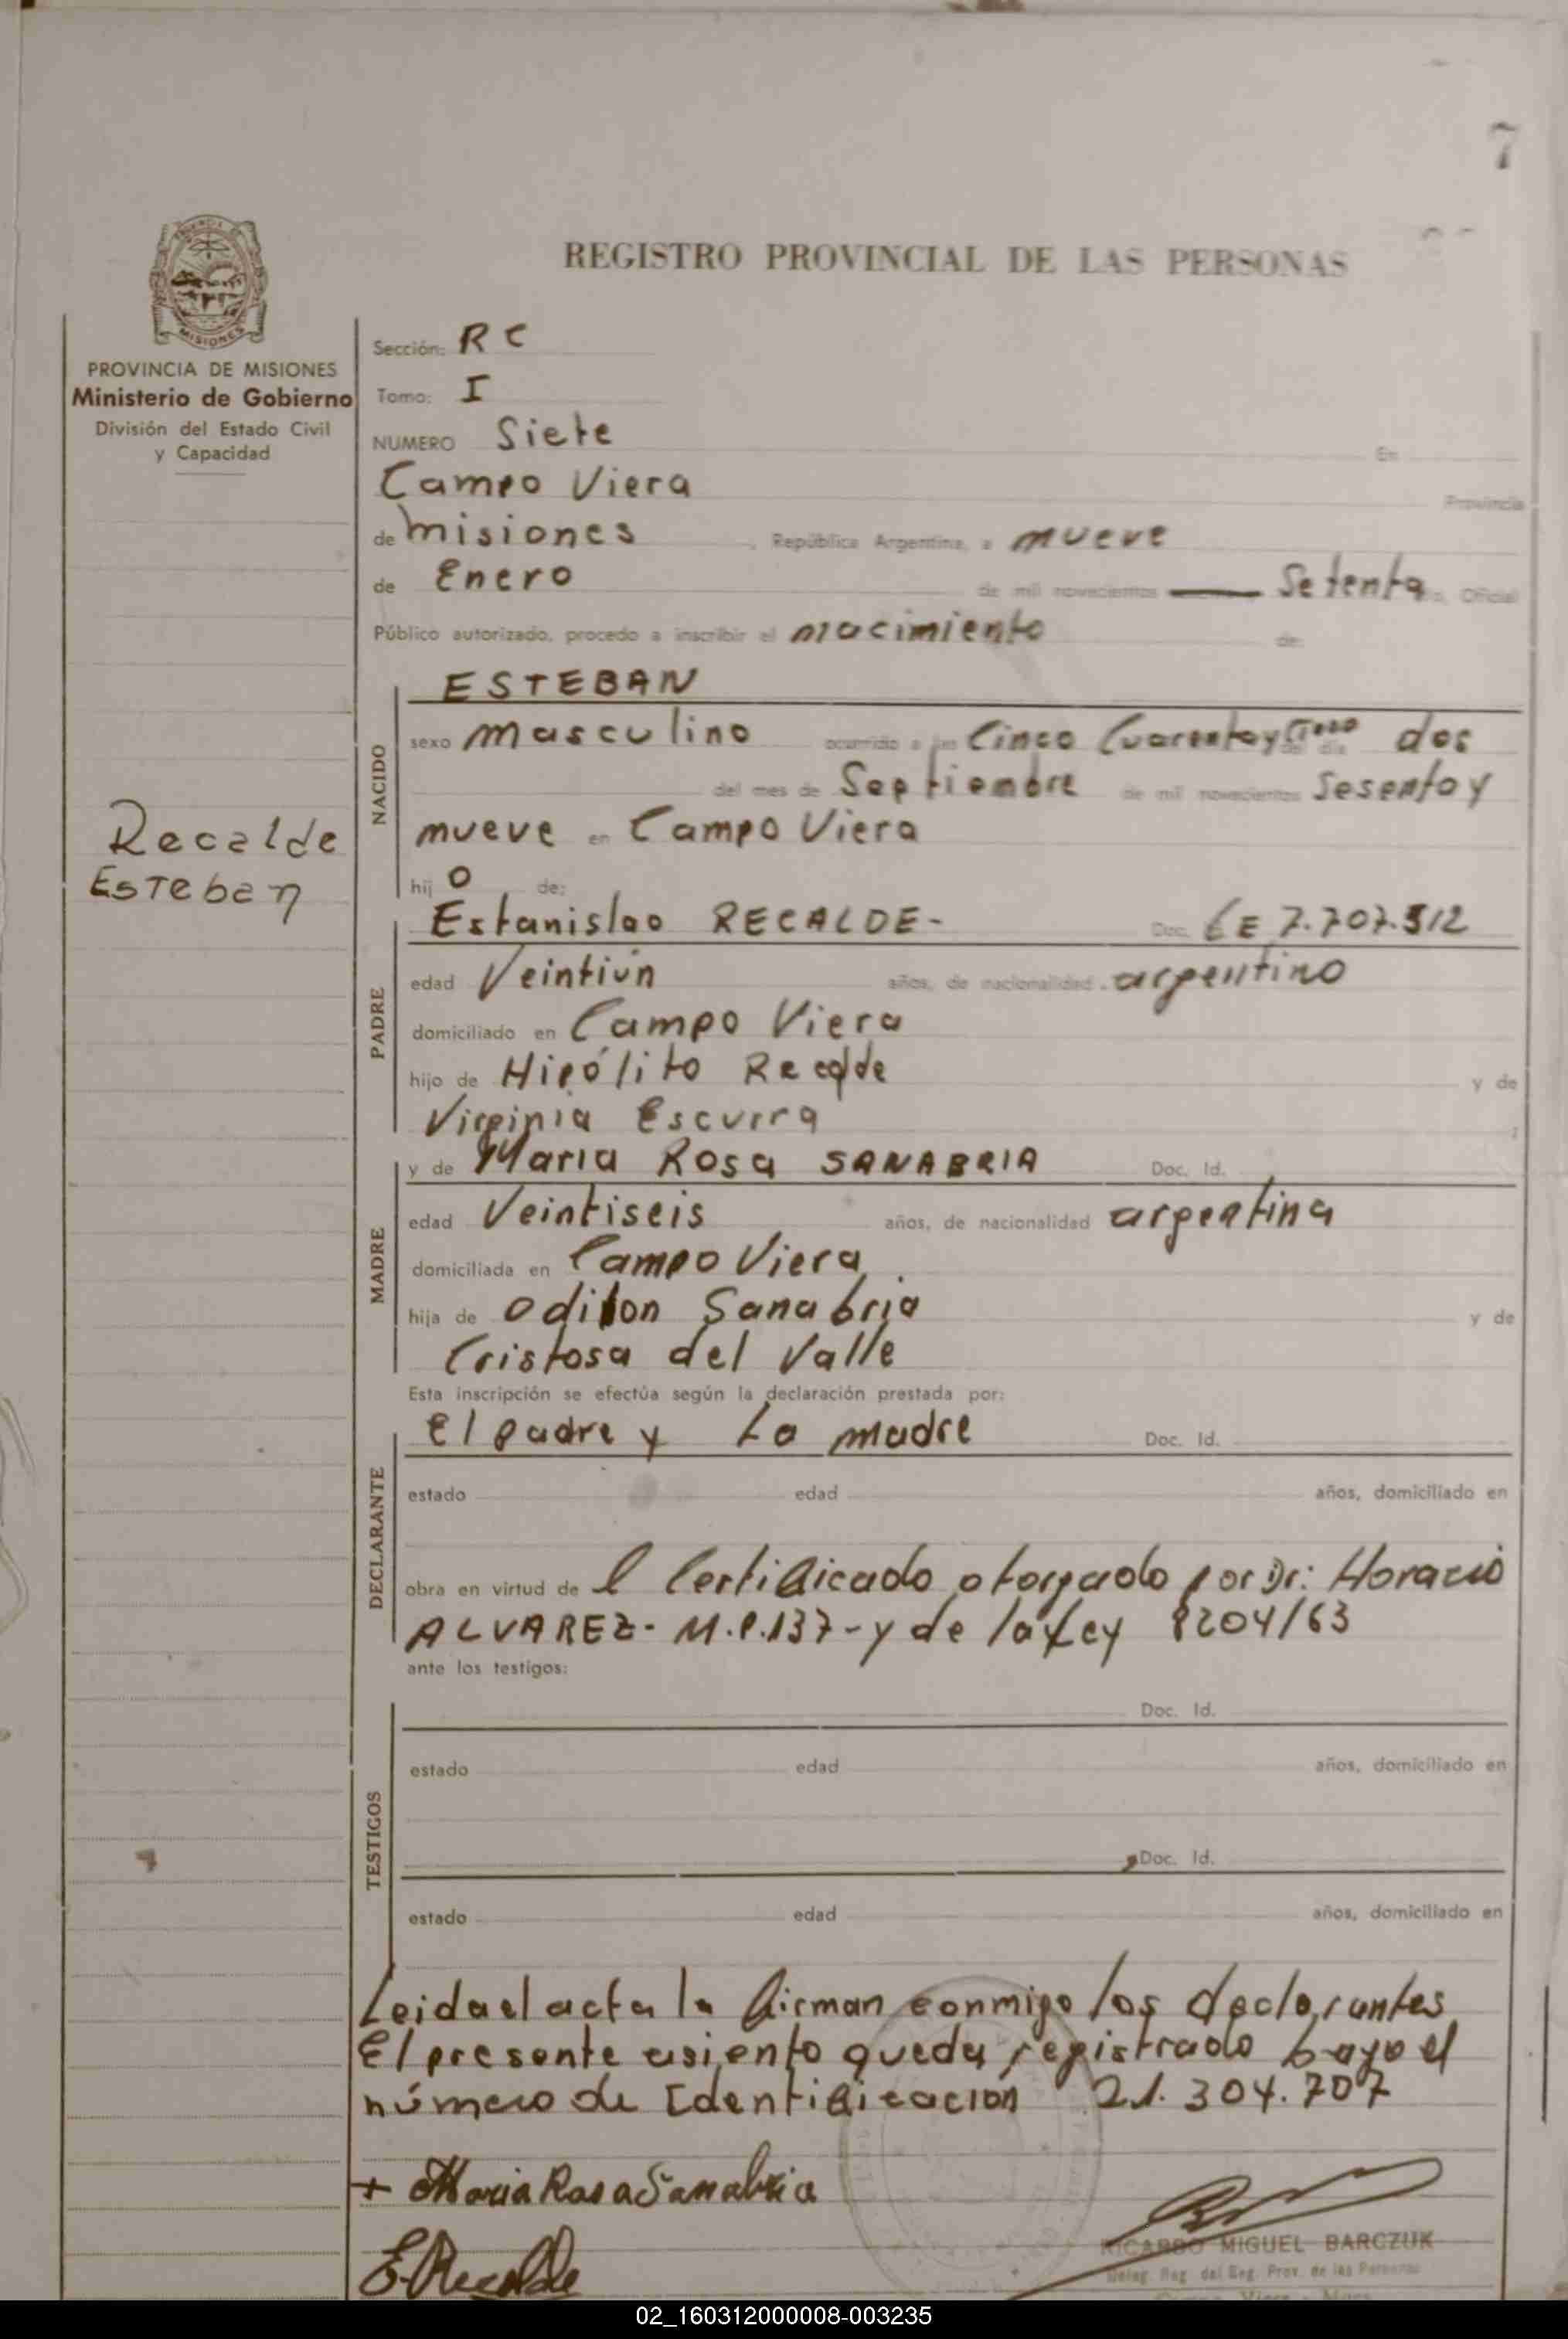 7
REGISTRO PROVINCIAL DE LAS PERSONAS
PROVINCIA DE MISIONES
Ministerio de Gobierno
División del Estado Civil
y Capacidad
Recalde
Esteban
Sección: R C
Tomo: I
NUMERO Siete En
Campo Viera Provincia
de Misiones, República Argentina, a nueve
de Enero de mil novecientos — Setenta, Oficial
Público autorizado, procedo a inscribir el nacimiento de:
NACIDO
ESTEBAN
sexo masculino ocurrido a las Cinco Cuarentay cinco del día dos
del mes de Septiembre de mil novecientos Sesenta y
nueve en Campo Viera
hij o de:
PADRE
Estanislao RECALDE- Doc. LE 7.707.512
edad Veintiún años, de nacionalidad argentino
domiciliado en Campo Viera
hijo de Hipólito Recalde y de
Virginia Escurra
MADRE
y de Maria Rosa SANABRIA Doc. Id.
edad Veintiseis años, de nacionalidad argentina
domiciliada en Campo Viera.
hija de Odilon Sanabria y de
Cristosa del Valle
Esta inscripción se efectúa según la declaración prestada por:
DECLARANTE
El padre y La madre Doc. Id.
estado edad años, domiciliado en
obra en virtud de l Certificado otorgado por Dr: Horacio
ALVAREZ- M.P.137-y de la Ley 8204/63
ante los testigos:
TESTIGOS
Doc. Id.
estado edad años, domiciliado en
Doc. Id.
estado edad años, domiciliado en
Leida el acta la firman conmigo los declarantes
El presente asiento queda registrado bajo el
número de Identificación 21.304.707
+ Maria Rosa Sanabria
E. Recalde
RICARDO MIGUEL BARCZUK
Deleg. Reg. del Reg. Prov. de las Personas
02_160312000008-003235